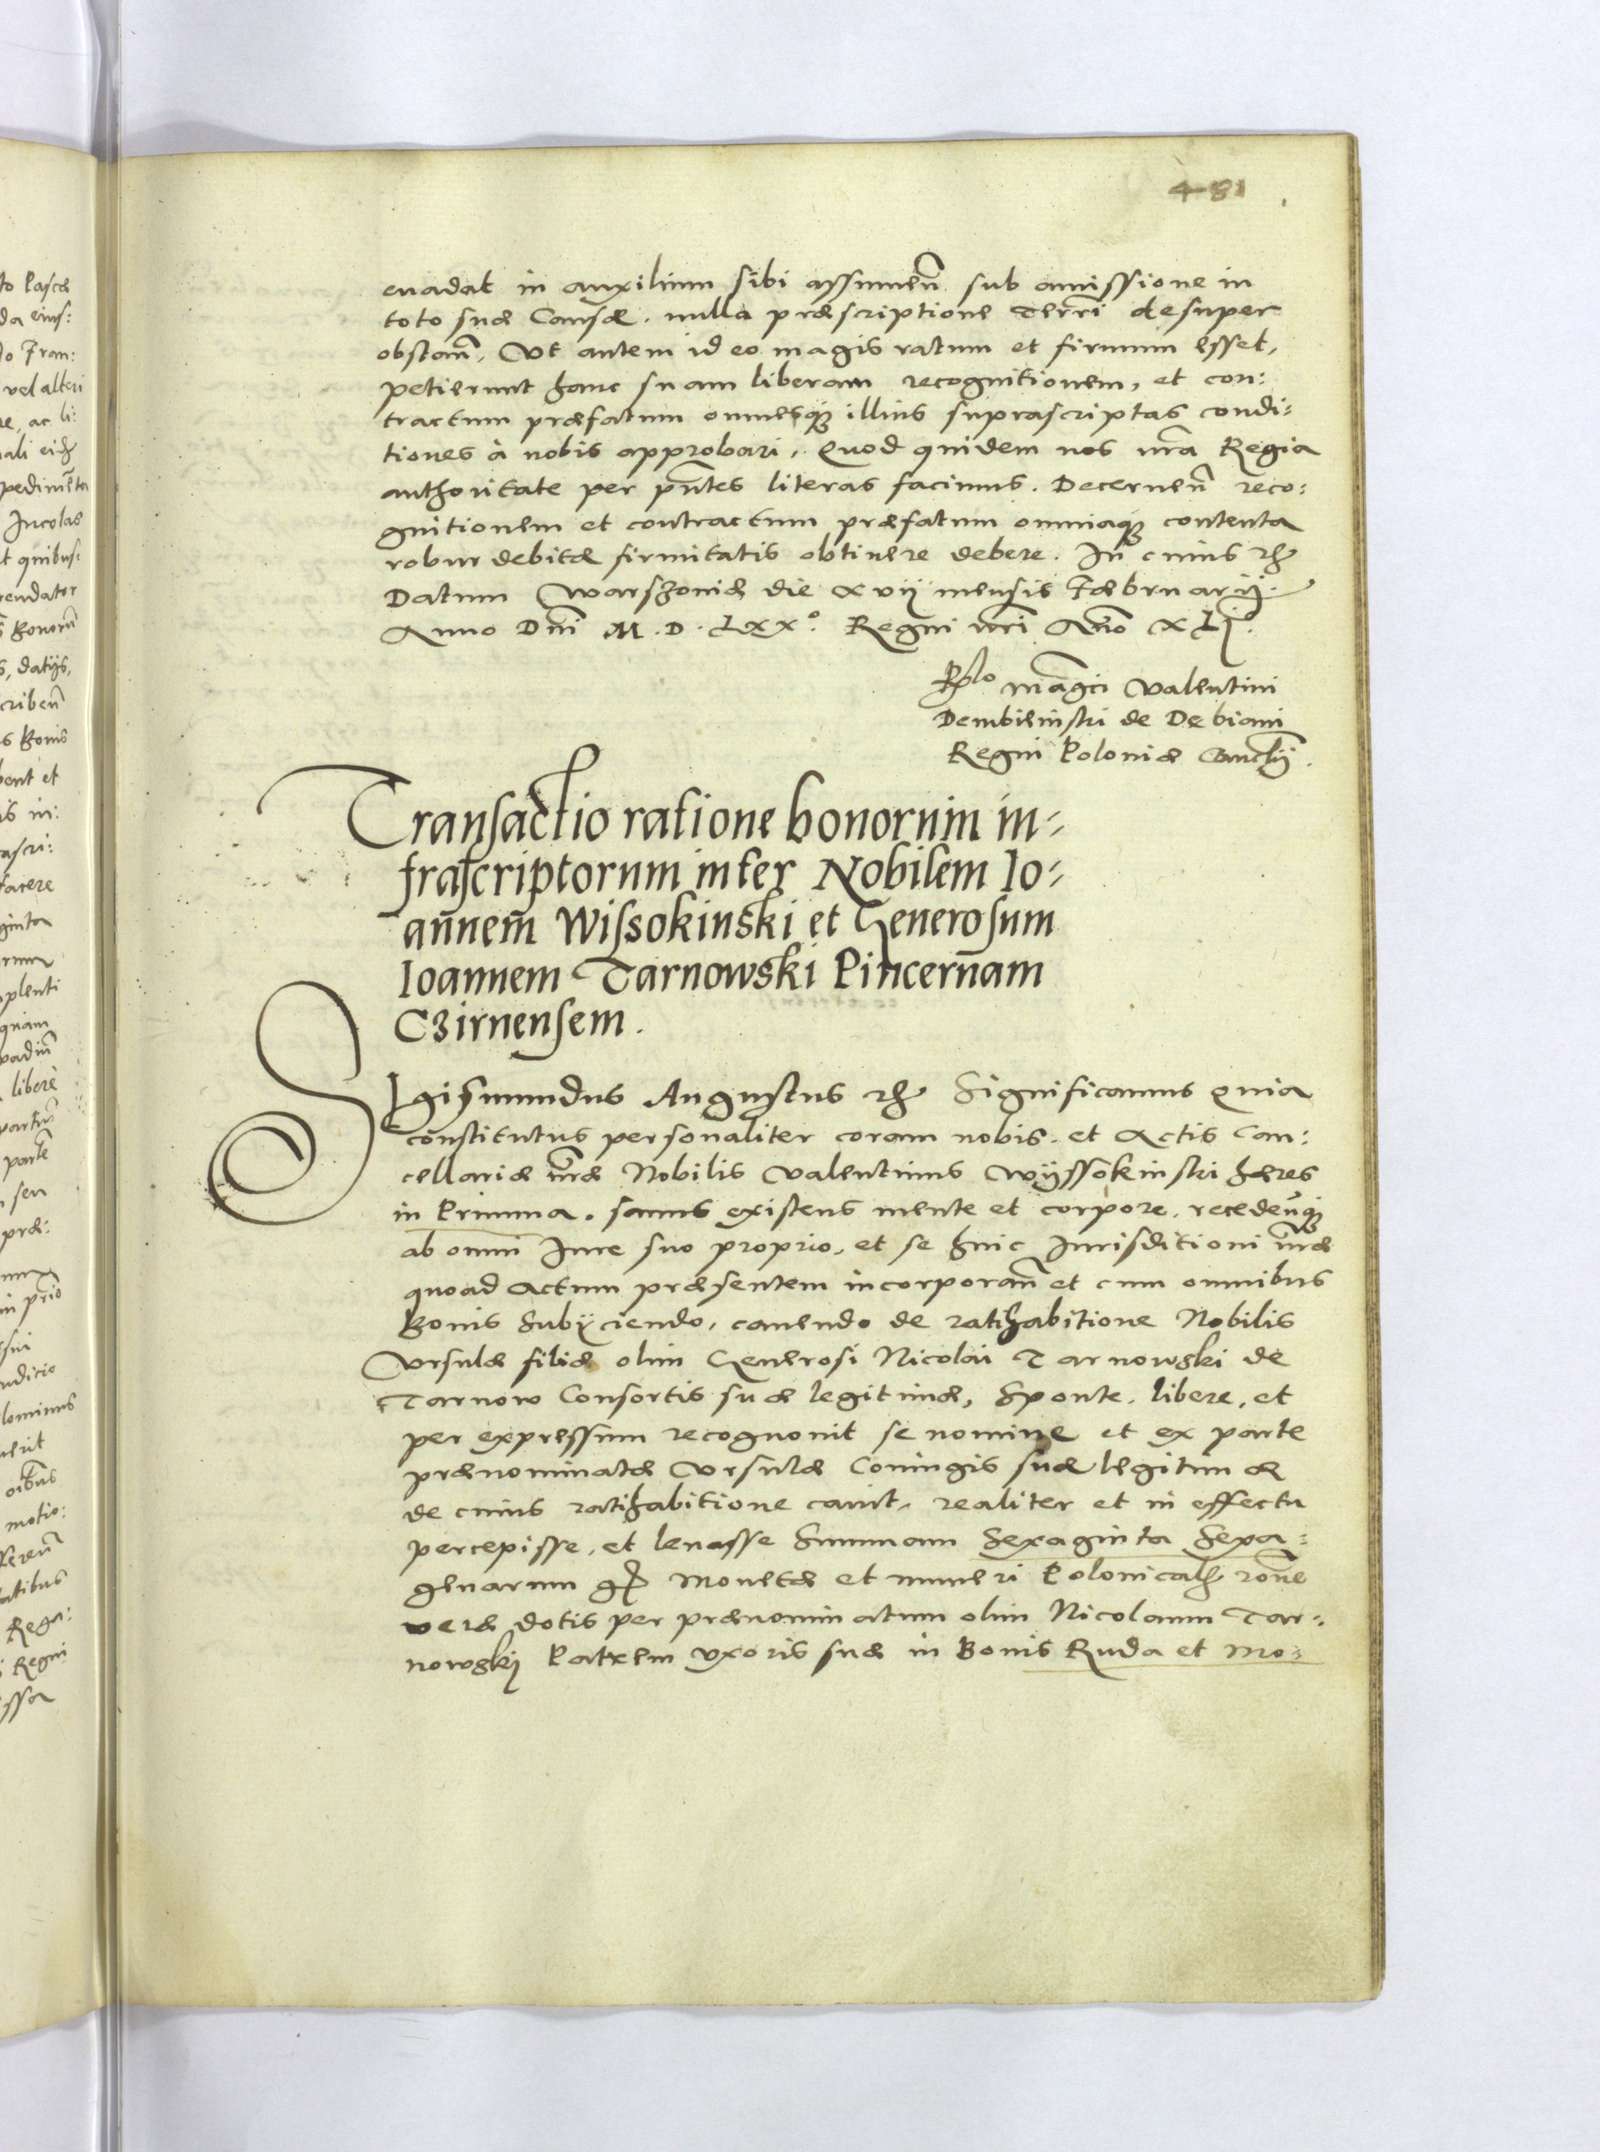 481
euadat in auxilium sibi assumen̄ sub amissione in
toto suæ Causæ. nulla præscriptione terrī desuper
obstan̄. Vt autem id eo magis ratum et firmum esset,
petierunt hanc suam liberam recognitionem, et con:
tractum præfatum omnesq̨ illius suprascriptas condi:
tiones à nobis approbari. Quod quidem nos nr̄a Regia
authoritate per pn̄tes literas facimus. Decernen̄ reco:
gnitionem et contractum præfatum omniaq̨ contenta
robur debitæ firmitatis obtinere debere. In cuius rꝫ
Datum Warschouiæ die xvij mensis Fæbruarij.
Anno Dnī M.D.Lxx°. Regni nrī Ann̄o xLj.
Rlō māgci Valentini
Dembieinski de Debiani
Regni Poloniæ Cancl̄rij.
Transactio ratione bonorum in-
frascriptorum inter Nobilem Io-
an̄nem̄ Wissokinski et Generosum
Ioannem Tarnowski Pincern̄am
Czirnensem.
SIgismundus Augustus rꝫ Significamus Quia
constitutus personaliter coram nobis. et Actis Can:
cellariæ nr̄æ Nobilis Valentinus Wyssokinski hæres
in Primna. sanus existens mente et corpore. recedēnq̨
ab omni Iure suo proprio, et se huic Iurisditioni nr̄æ
quoad Actum præsentem incorporan̄ et cum omnibus
Bonis Subijciendo, cauendo de ratihabitione Nobilis
Vrsulæ filiæ olim Generosi Nicolai Tarnowski de
Tarnow Consortis suæ legitimæ, Sponte. libere, et
per expressum recognouit se nomine et ex parte
prænominatæ Vrsulæ Coniugis suæ legitimæ
de cuius ratihabitione cauit, realiter et in effectu
percepisse, et leuasse Summam Sexaginta Sexa-
genarum gr̄ Monetæ et numeri Polonicalꝫ rōne
veræ dotis per prænominatum olim Nicolaum Tar-
nowskij Patrem vxoris suæ in Bonis Ruda et Mo-